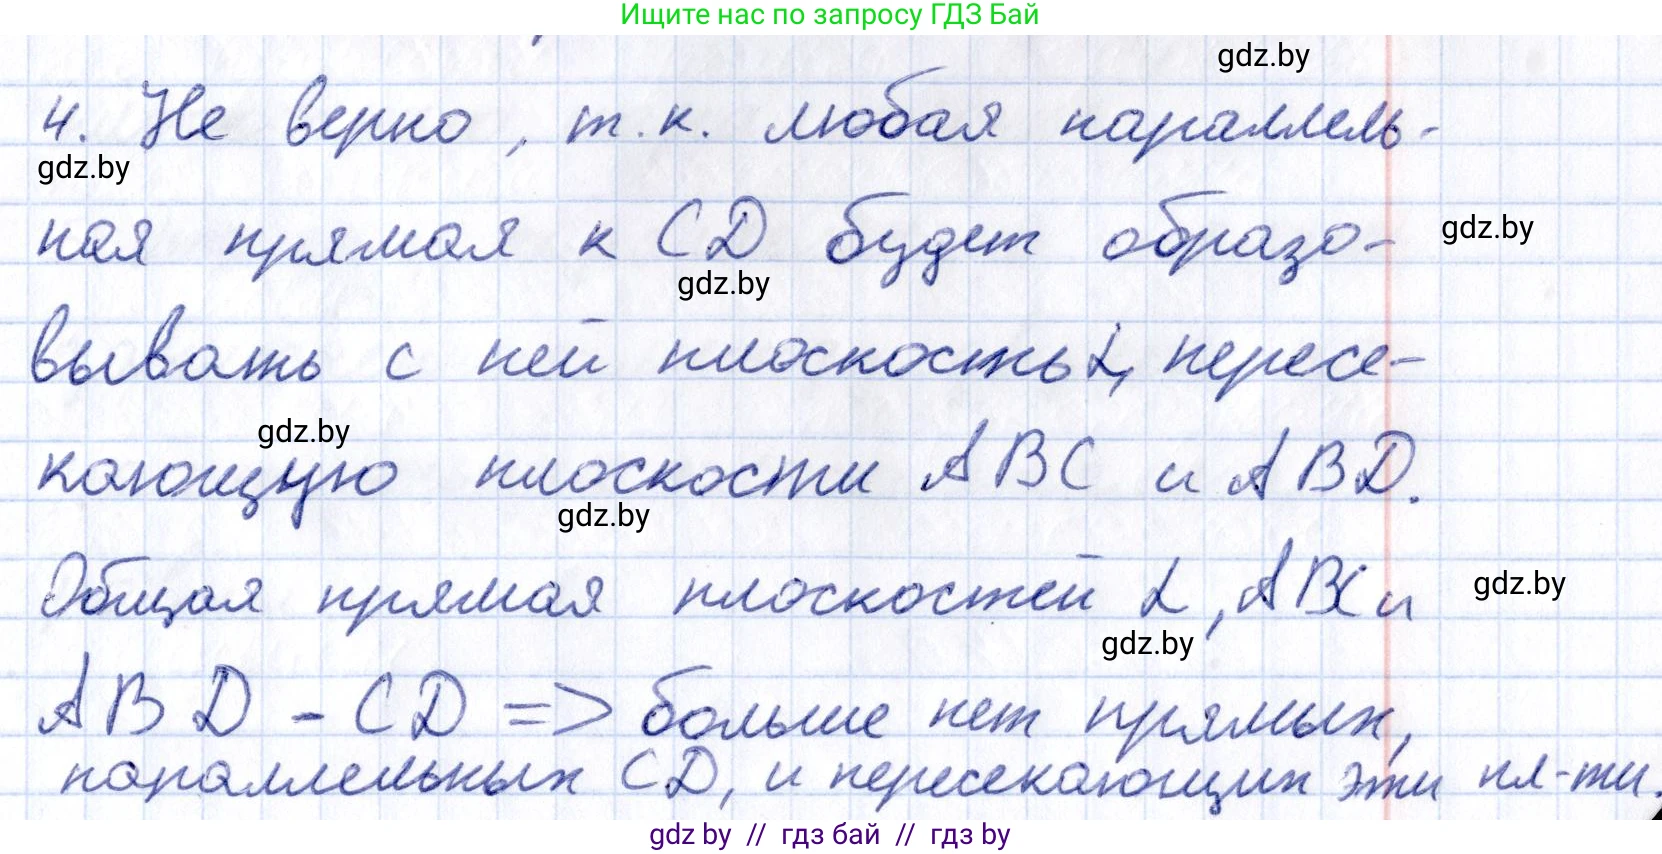 Ищите нас по запросу ГДЗ Бай
gdz.by
4. Не верно, т.к. любая параллель-
gdz.by
ная прямая к CD будет образо-
gdz.by
gdz.by
вывать с ней плоскость α, пересе-
gdz.by
кающую плоскости ABC и ABD.
gdz.by
Общая прямая плоскостей α, ABC и
gdz.by
gdz.by
ABD - CD => больше нет прямых,
параллельных CD, и пересекающих эти пл-ти.
gdz by // гдз бай // гдз by